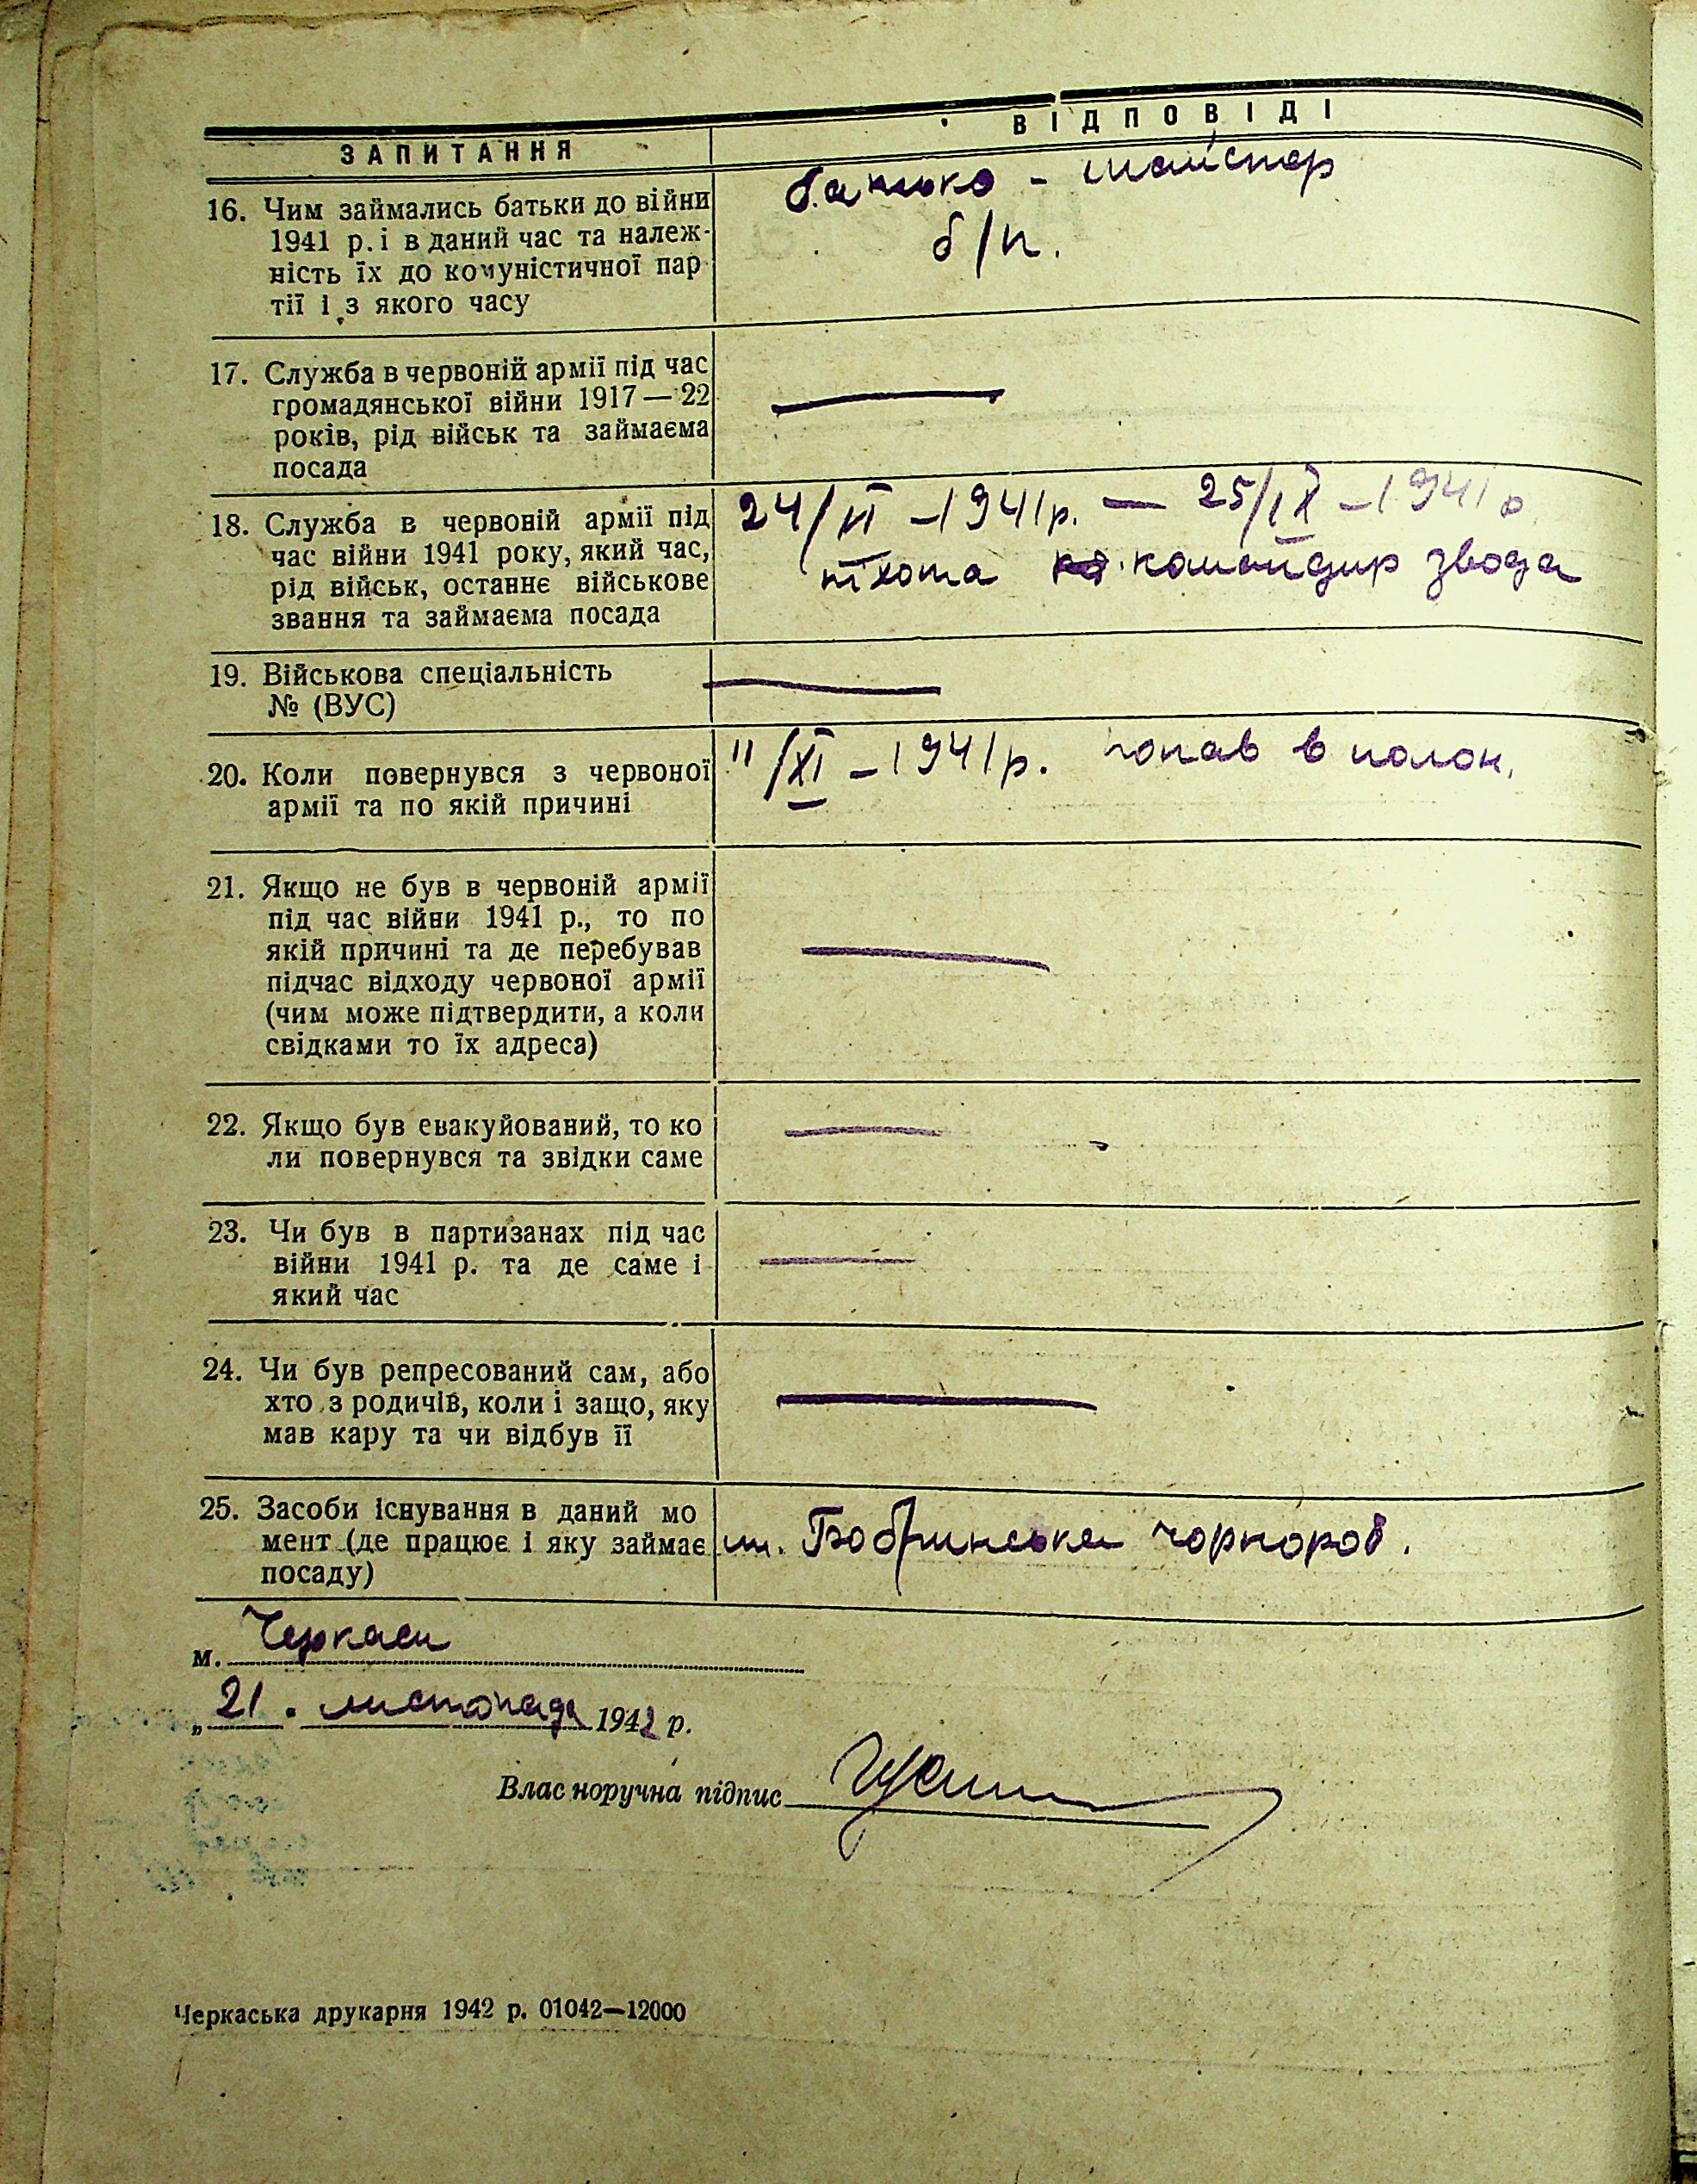 ЗАПИТАННЯ
ВІДПОВІДІ
16. Чим займались батьки до війни
1941 р. і в даний час та належ-
ність їх до комуністичної пар
тії і з якого часу
батько - майстор
б/п.
17. Служба в червоній армії під час
громадянської війни 1917—22
років, рід військ та займаєма
посада
18. Служба в червоній армії під
час війни 1941 року, який час,
рід військ, останнє військове
звання та займаєма посада
24/VI - 1941 р. — 25/IX - 1941 р
піхота командир звода
19. Військова спеціальність
№ (ВУС)
20. Коли повернувся з червоної
армії та по якій причині
11/XI - 1941 р. попав в полон.
21. Якщо не був в червоній армії
під час війни 1941 р., то по
якій причині та де перебував
підчас відходу червоної армії
(чим може підтвердити, а коли
свідками то їх адреса)
22. Якщо був евакуйований, то ко
ли повернувся та звідки саме
23. Чи був в партизанах під час
війни 1941 р. та де саме і
який час
24. Чи був репресований сам, або
хто з родичів, коли і защо, яку
мав кару та чи відбув її
25. Засоби існування в даний мо
мент (де працює і яку займає
посаду)
Бобринська чорнороб.
м. Черкаси
„21. листопада 1942 р.
Власноручна підпис
Черкаська друкарня 1942 р. 01042—12000